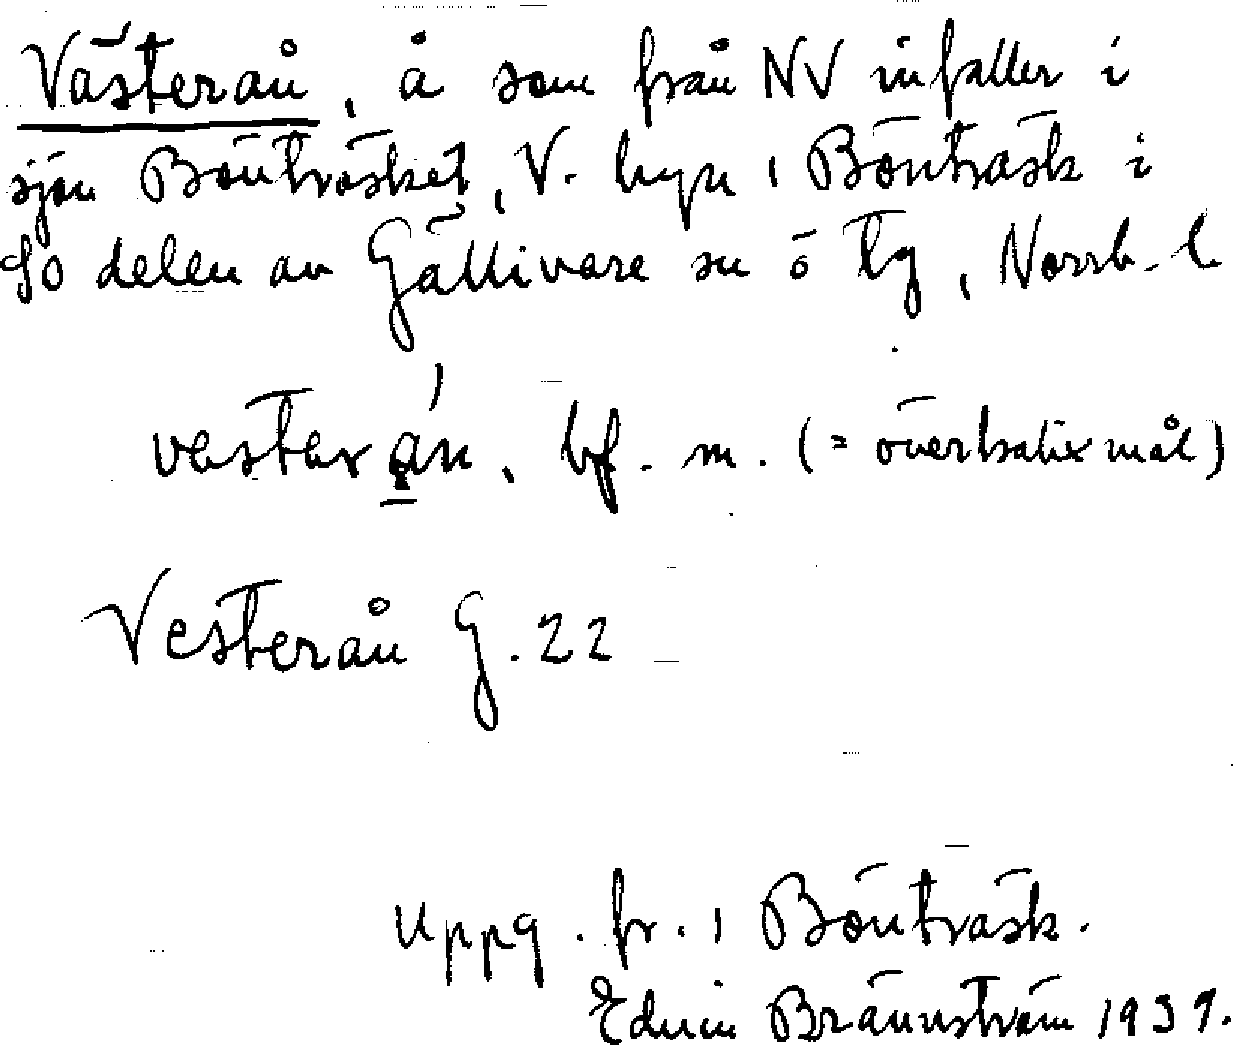 Västerån, å som från NV infaller i
sjön Bönträsket, V. byn i Bönträsk i
SO delen av Gällivare sn ö tg, Norrb. l
vesterån, bf. m. (= överkalixmål)
Vesterån G. 22
Uppg. fr. i Bönträsk.
Edvin Brännström 1939.